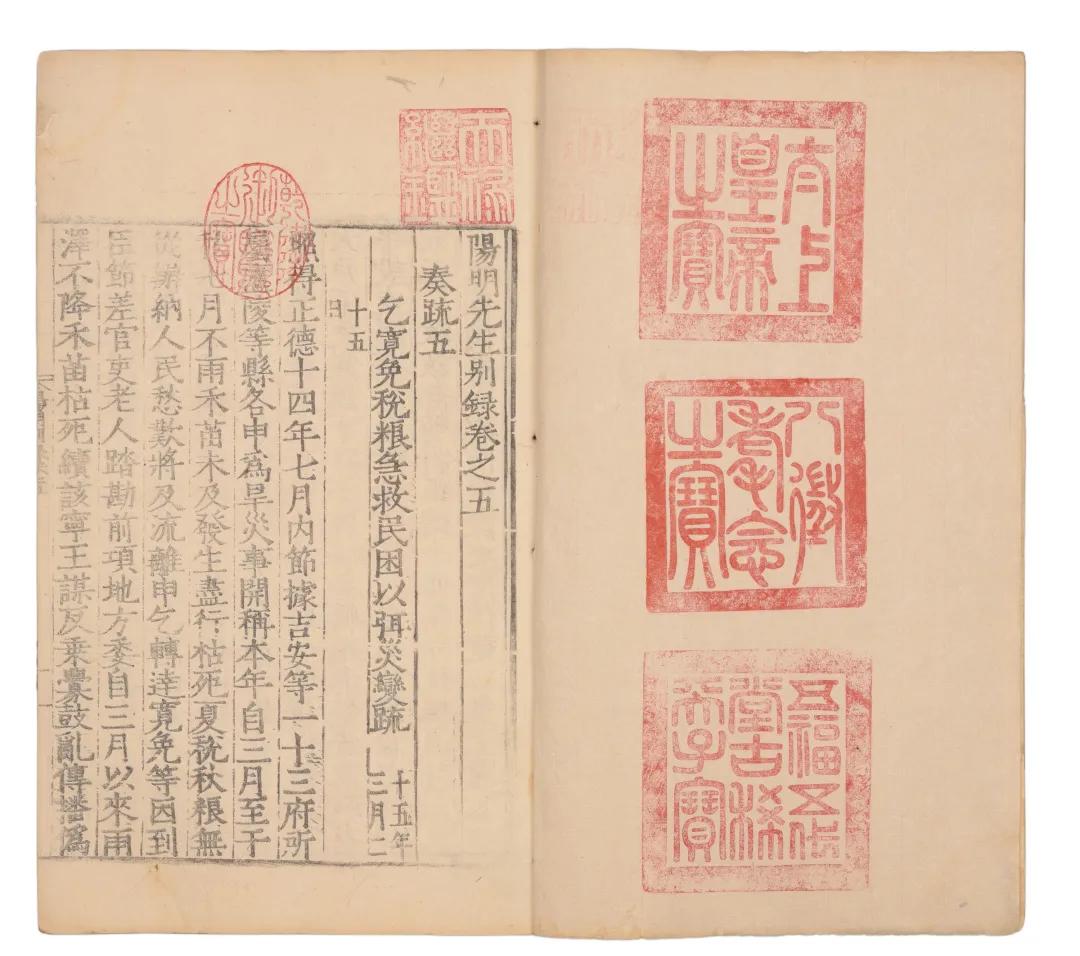 太上
皇帝
之寶
八徵
耄念
之寶
五福五代
堂古稀
天子寶
天禄
繼鑑
乾隆
御覽
之寶
陽明先生别録卷之五
奏疏五
乞寬免稅粮急救民困以弭災變疏 十五年
三月二
十五
日
照得正德十四年七月内節據吉安等一十三府所
屬廬陵等縣各申爲旱災事開稱本年自三月至于
七月不雨禾苗未及發生盡行枯死夏稅秋粮無
從辦納人民愁歎將及流離申乞轉達寬免等因到
臣節差官吏老人踏勘前項地方委自三月以來雨
澤不降禾苗枯死續該寧王謀反乘釁鼓亂傳播爲